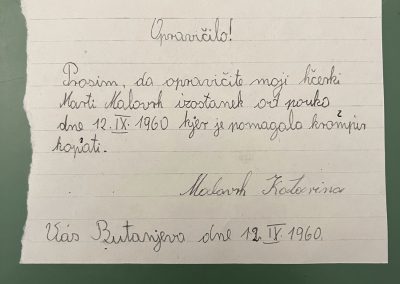 Opravičilo!
Prosim, da opravičite moji hčerki
Marti Malovrh izostanek od pouka
dne 12. IX. 1960 kjer je pomagala krompir
kopati.
Malovrh Katarina
Butanjeva dne 12. IX. 1960.